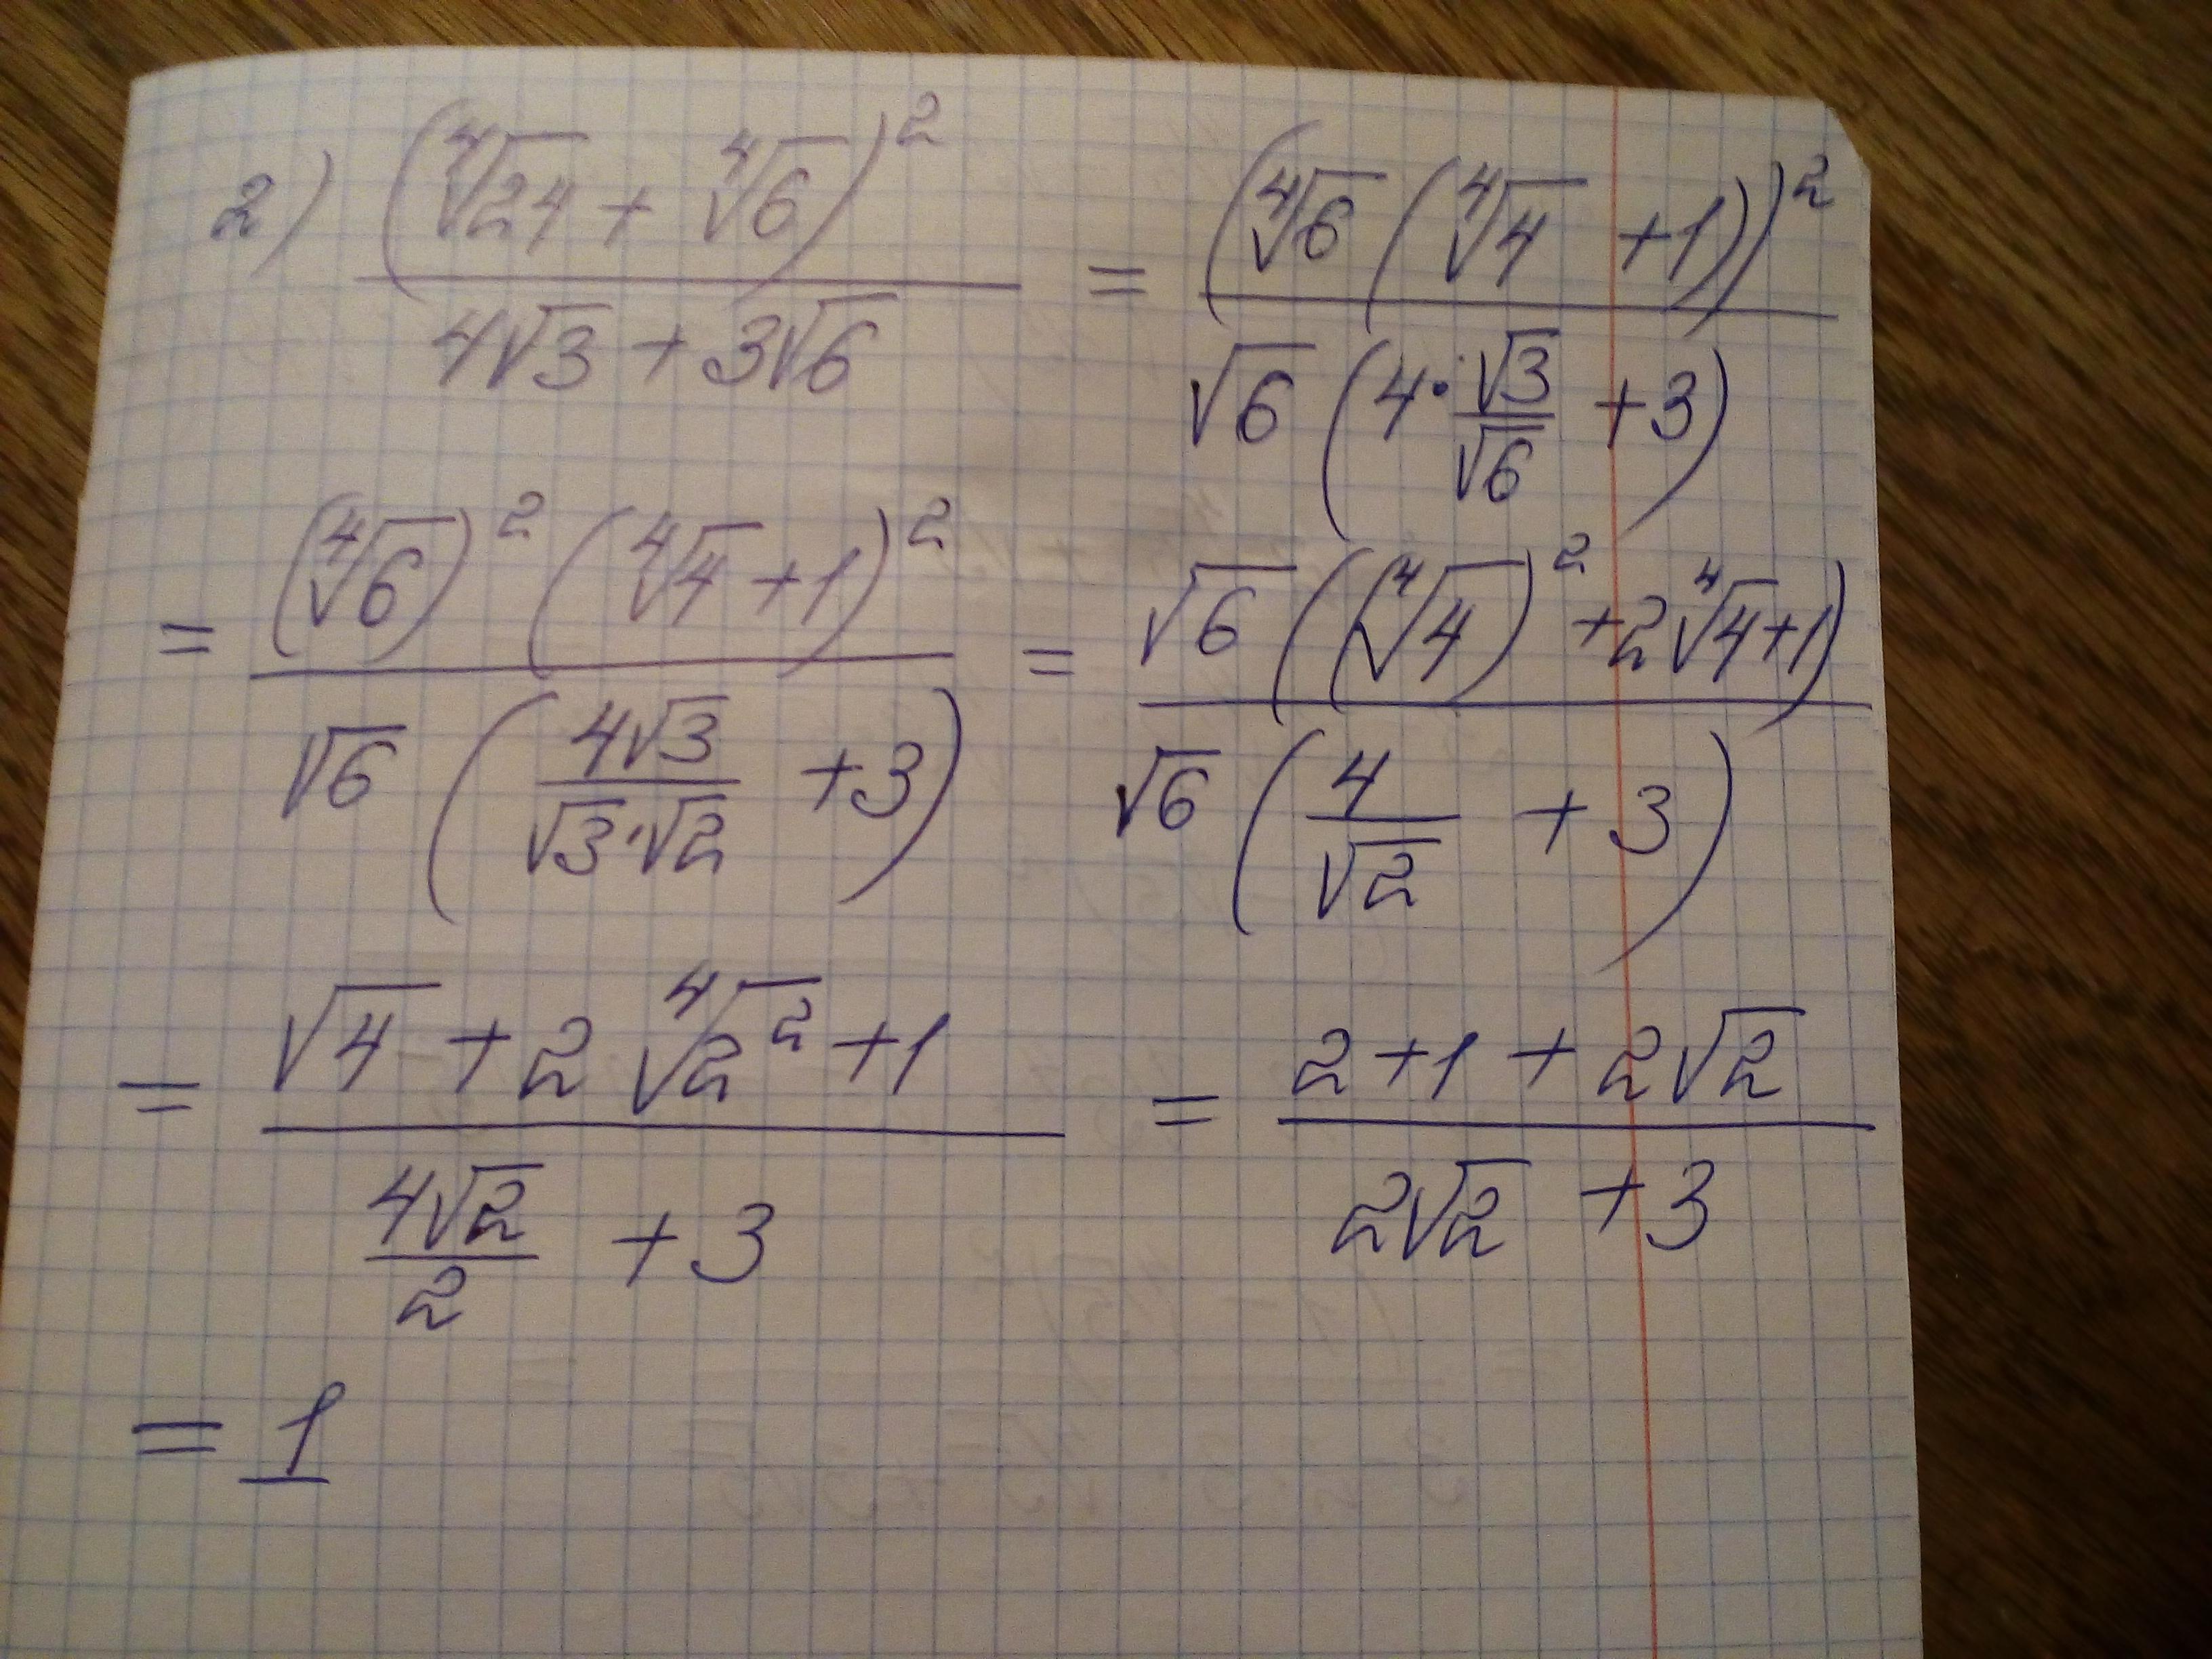 2) (∜24 + ∜6)² / (4√3 + 3√6) = (∜6(∜4 + 1))² / (√6(4·√3/√6 + 3))
= (∜6)²(∜4 + 1)² / (√6(4√3/(√3·√2) + 3)) = √6((∜4)² + 2∜4 + 1) / (√6(4/√2 + 3))
= (√4 + 2∜2² + 1) / (4√2/2 + 3) = (2 + 1 + 2√2) / (2√2 + 3)
= 1